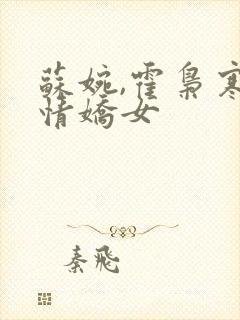 蘇婉,霍梟寒
情嬌女
秦飛